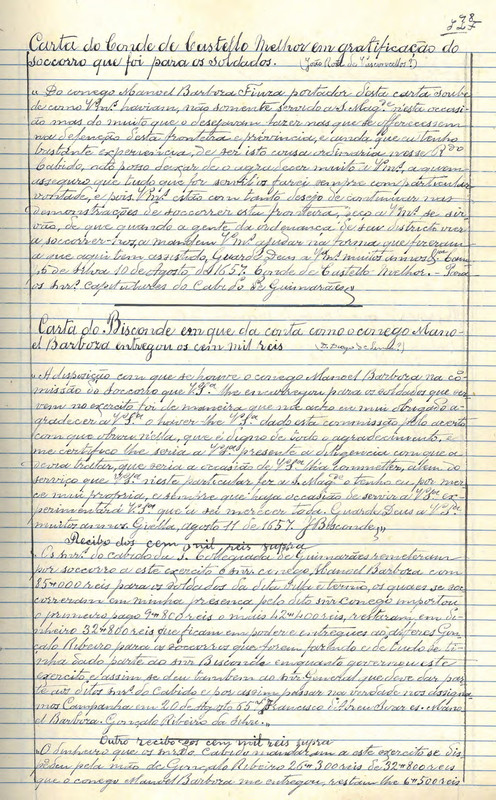 Carta do Conde de Castello Melhor em gratificação do
soccorro que foi para os soldados. (João Roiz de Vasconcellos?)
"Do conego Manoel Barboza portador desta carta soube
de como Vªmᶜˢ haviam, não somente servido a S. Magᵈᵉ nesta occasi-
ão mas do muito que o desejaram fazer nas que se offerecessem
na defenção desta fronteira e provincia, e ainda que eu tenho
bastante experiencia, de ser isto cousa ordinaria nesse Rᵈᵒ
Cabido, não posso deixar de o agradecer muito a Vªmᶜˢ, a quem
asseguro que tudo que for servil-o farei sempre com particular
vontade, e pois Vªmᶜˢ estão com tanto desejo de continuar nas
demonstrações de soccorrer esta fronteira, peço a Vªmᶜˢ se sir-
vão, de que quando a gente da ordenança de seu districto vier
a soccorrer-nos, a mandem Vªmᶜˢ ajudar na forma que fizeram
a que aqui tem assistido, Guarde Deus a Vªmᶜˢ muitos annos.
de Silva 10 de Agosto de 1657. Conde de Castello Melhor. - Para
os snrˢ. Capitulares do Cabido de Guimarães"
Carta do Bisconde em que da conta como o conego Mano-
el Barboza entregou os cem mil reis
"A disposição com que se houve o conego Manoel Barboza na co-
missão do soccorro que lhe encarregou para os soldados que ser-
vem no exercito foi de maneira que me acho eu mui obrigado a-
gradecer a o haver-lhe dado esta commissão pelo acerto
com que obrou nella, que é digno de todo o agradecimento, e
me certifico lhe seria a presente a diligencia com que a
devia tratar, que seria a occasião de lhe commetter, alem do
serviço que neste particular fez a S. Magᵈᵉ tenho eu por mer-
ce mui propria, e sempre que haja occasião de servir a ex-
perimentará que eu sei merecer tudo. Guarde Deus a
muitos annos. agosto 11 de 1657. Bisconde."
Recibo dos cem mil reis supra
"Os snrˢ. do cabido da I. Collegiada de Guimarães remeteram
por soccorro a este exercito o snr conego Manoel Barboza com
85#000 reis para os soldados da dita villa e termo, os quaes se soc-
correram em minha presença pelo dito snr conego importou
o primeiro pago 9#800 reis o mais 42#400 reis, restaram em di-
nheiro 32#800 reis que ficam em poder e entregues ao alferes Gon-
çalo Ribeiro para os soccorros que forem faltando e de tudo se ti-
nha dado parte ao snr Bisconde emquanto governou este
exercito e assim se deu tambem ao snr General, que deve dar par-
te aos ditos snrˢ. do Cabido e por assim passar na verdade nos assigna-
mos Campanha em 20 de Agosto 55 Francisco d'Abreu Soares. Mano-
el Barboza. Gonçalo Ribeiro da Silva."
Outro recibo dos cem mil reis supra
"O dinheiro que os snrˢ. do Cabido mandaram a este exercito se dis-
pendeu pela mão de Gonçalo Ribeiro 26#300 reis de 32#800 reis
que o conego Manoel Barboza me entregou, restam-lhe 6#500 reis